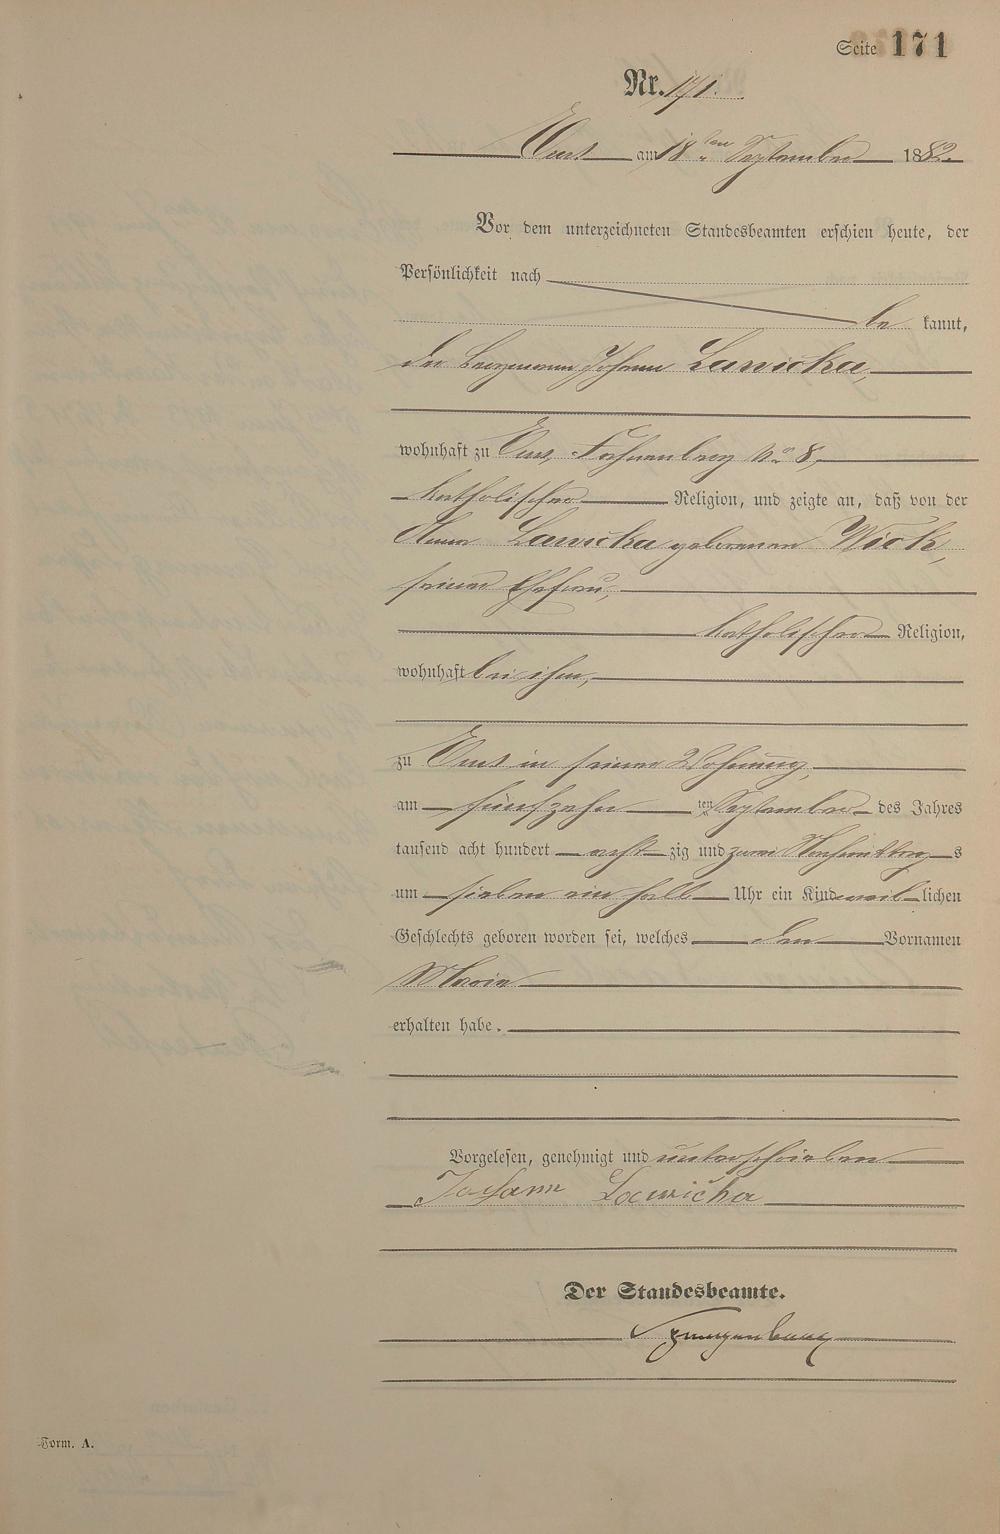 Seite 171
Nr. 171.
Ems am 18ten September 1882.
Vor dem unterzeichneten Standesbeamten erschien heute, der
Persönlichkeit nach
be kannt,
der Bergmann Johann Lawicka,
wohnhaft zu Ems, Fahnenberg No 8,
katholischer Religion, und zeigte an, daß von der
Anna Lawicka geborenen Wick,
seiner Ehefrau,
katholischer Religion,
wohnhaft bei ihm,
zu Ems in seiner Wohnung
am fünfzehn ten September des Jahres
tausend acht hundert acht zig und zwei Nachmittag s
um sieben ein halb Uhr ein Kind weib lichen
Geschlechts geboren worden sei, welches den Vornamen
Maria
erhalten habe.
Vorgelesen, genehmigt und unterschrieben
Johann Lawicka
Der Standesbeamte.
Form. A.